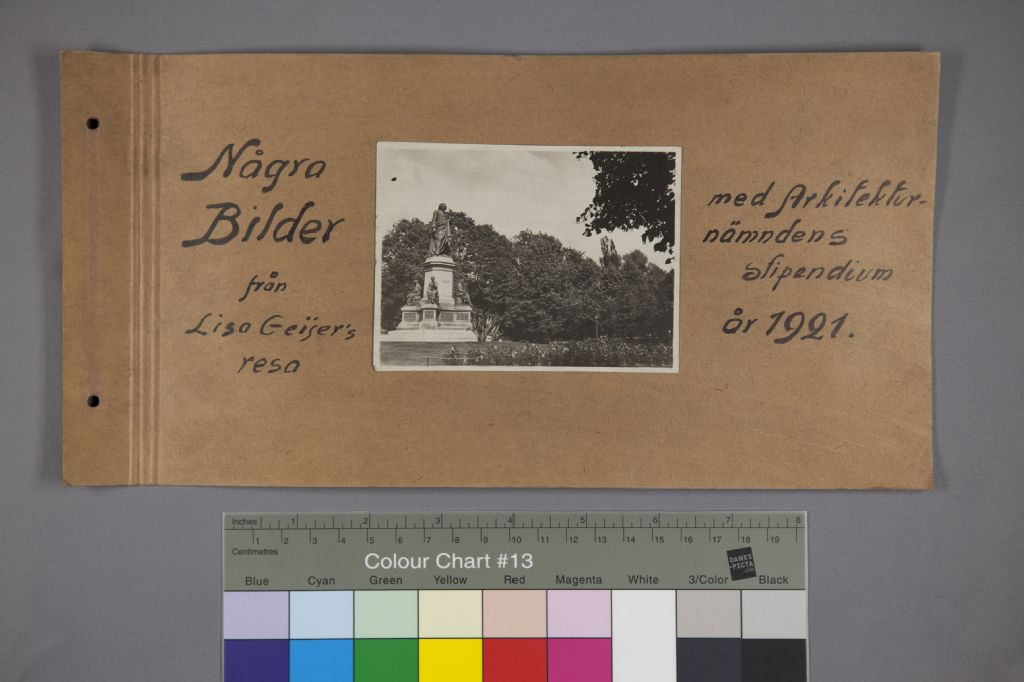 Några
Bilder
från
Lisa Geijer's
resa
med Arkitektur-
nämndens
stipendium
år 1921.
Inches 1 2 3 4 5 6 7 8
1 2 3 4 5 6 7 8 9 10 11 12 13 14 15 16 17 18 19
Centimetres
Colour Chart #13
DANES
-PICTA
.COM
Blue Cyan Green Yellow Red Magenta White 3/Color Black